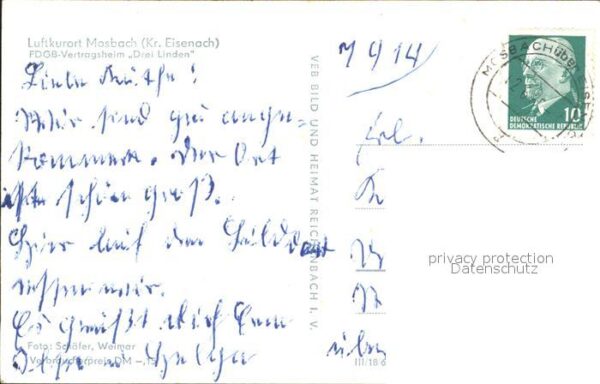 Luftkurort Mosbach (Kr. Eisenach)
FDGB-Vertragsheim „Drei Linden"
Liebe Käthe!
Wir sind gut ange-
kommen. Der Ort
ist schön groß.
Hier auf dem Bilde
essen wir.
Es grüßt dich
Helga
Foto: Schäfer, Weimar
Verbraucherpreis DM
VEB BILD UND HEIMAT REICHENBACH I. V.
MOSBACH über EISE
10
DEUTSCHE
DEMOKRATISCHE REPUBLIK
Frl.
K
über
III/18 6
privacy protection
Datenschutz